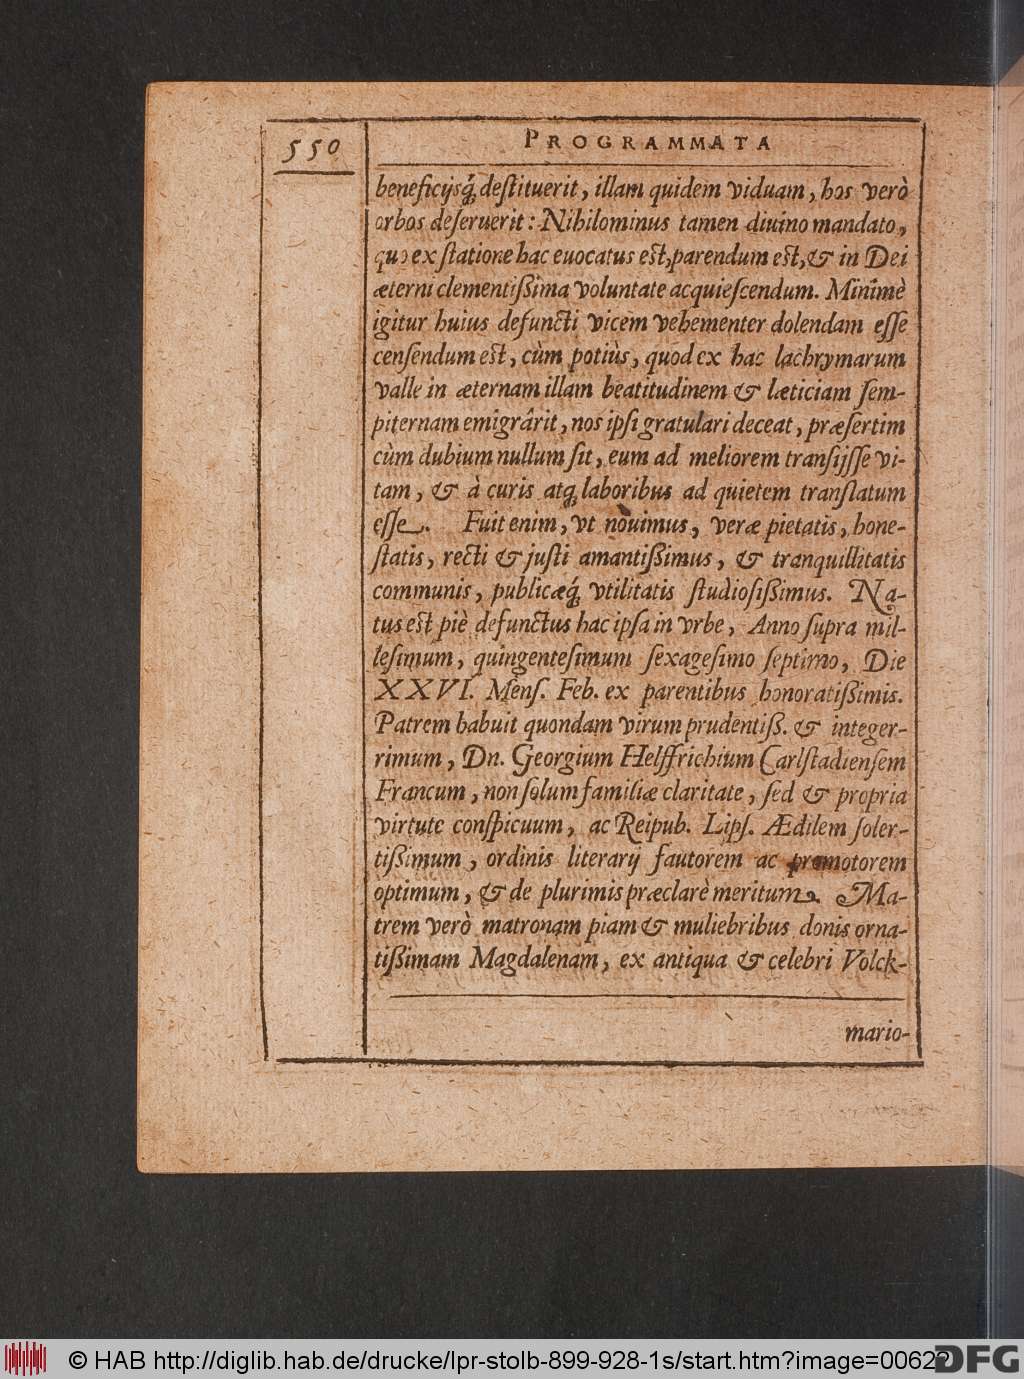 550
PROGRAMMATA
beneficijsq́; deſtituerit, illam quidem viduam, hos verò
orbos deſeruerit: Nihilominus tamen diuino mandato,
quo ex ſtatione hac euocatus eſt, parendum eſt, & in Dei
æterni clementißima voluntate acquieſcendum. Minimè
igitur huius defuncti vicem vehementer dolendam eſſe
cenſendum eſt, cùm potiùs, quod ex hac lachrymarum
valle in æternam illam beatitudinem & læticiam ſem-
piternam emigrârit, nos ipſi gratulari deceat, præſertim
cùm dubium nullum ſit, eum ad meliorem tranſijſſe vi-
tam, & à curis atq; laboribus ad quietem tranſlatum
eſſe. Fuit enim, vt nouimus, veræ pietatis, hone-
ſtatis, recti & juſti amantißimus, & tranquillitatis
communis, publicæq́; vtilitatis ſtudioſißimus. Na-
tus eſt piè defunctus hac ipſa in vrbe, Anno ſupra mil-
leſimum, quingenteſimum ſexageſimo ſeptimo, Die
XXVI. Menſ. Feb. ex parentibus honoratißimis.
Patrem habuit quondam virum prudentiß. & integer-
rimum, Dn. Georgium Helffrichium Carlſtadienſem
Francum, non ſolum familiæ claritate, ſed & propria
virtute conſpicuum, ac Reipub. Lipſ. Ædilem ſoler-
tißimum, ordinis literarij fautorem ac promotorem
optimum, & de plurimis præclarè meritum. Ma-
trem verò matronam piam & muliebribus donis orna-
tißimam Magdalenam, ex antiqua & celebri Volck-
mario-
© HAB http://diglib.hab.de/drucke/lpr-stolb-899-928-1s/start.htm?image=00622
DFG